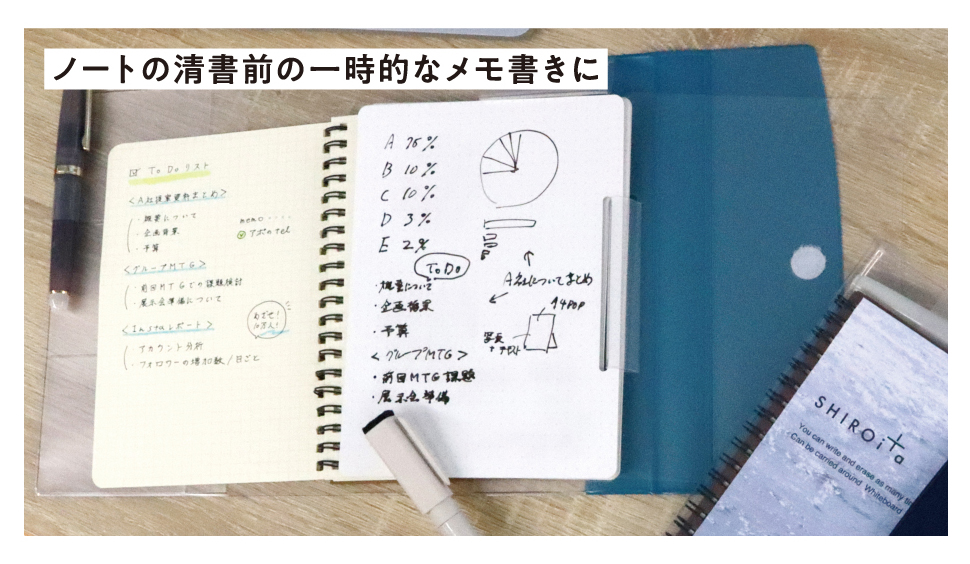 ノートの清書前の一時的なメモ書きに
☑ ToDoリスト
<A社提案資料まとめ>
・概要について
・企画背景
・予算
memo・・・・
アポのTel
<グループMTG>
・前回MTGでの課題検討
・展示会準備について
めざせ!
10万人!
<Instaレポート>
・アカウント分析
・フォロワーの増加数/日ごと
A 75%
B 10%
C 10%
D 3%
E 2%
ToDo
A社についてまとめ
・概要について
・企画背景
・予算
↑4POP
写真
+テキスト
<グループMTG>
・前回MTG課題
・展示会準備
SHIROiTa
You can write and erase as many
Can be carried around Whiteboard